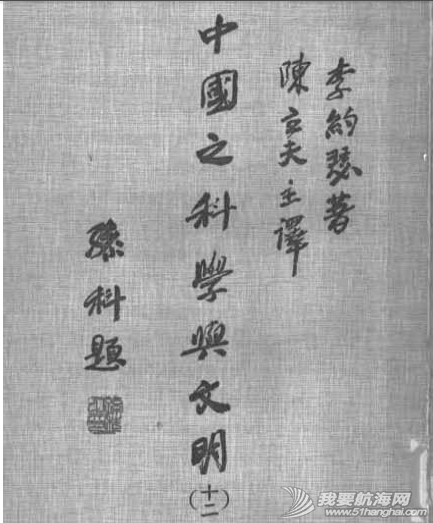 李約瑟著
陳立夫主譯
中國之科學與文明(十二)
孫科題
我要航海网
www.51hanghai.com